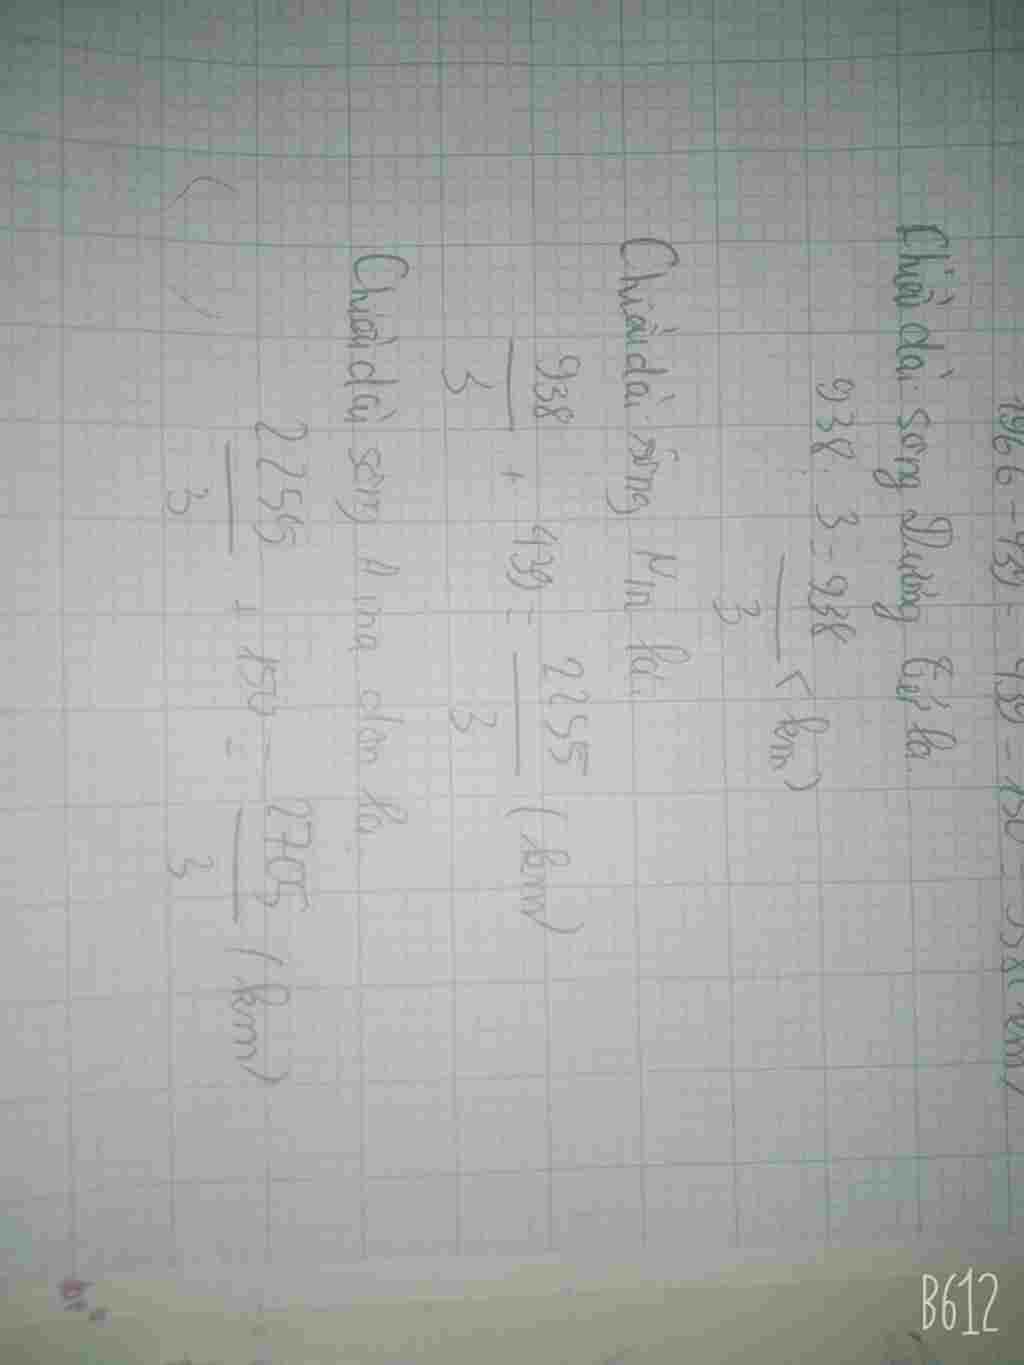 1966 - 439 - 439 - 150 = 938 (km)
Chiều dài sông Dương Tử là
938 : 3 = 938/3 (km)
Chiều dài sông Nin là:
938/3 + 439 = 2255/3 (km)
Chiều dài sông Amadon là:
2255/3 + 150 = 2705/3 (km)
B612